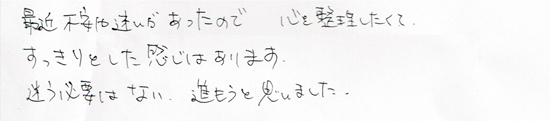 最近不安や迷いがあったので 心を整理したくて.
すっきりとした感じはあります.
迷う必要はない. 進もうと思いました.